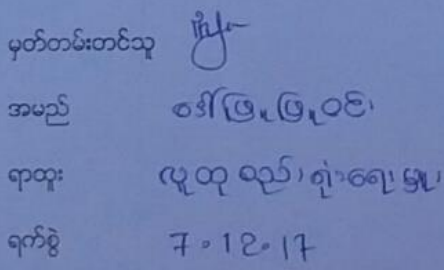 မှတ်တမ်းတင်သူ
အမည် ဒေါ်ဖြူဖြူဝင်း
ရာထူး လူထု စည်းရုံးရေးမှူး
ရက်စွဲ 7.12.17